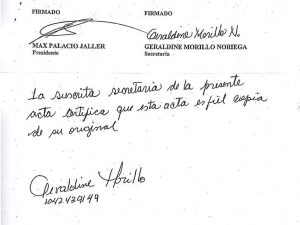 FIRMADO FIRMADO
Geraldine Morillo N.
MAX PALACIO JALLER GERALDINE MORILLO NORIEGA
Presidente Secretaria
La suscrita secretaria de la presente
acta certifica que esta acta es fiel copia
de su original
Geraldine Morillo
1042439149